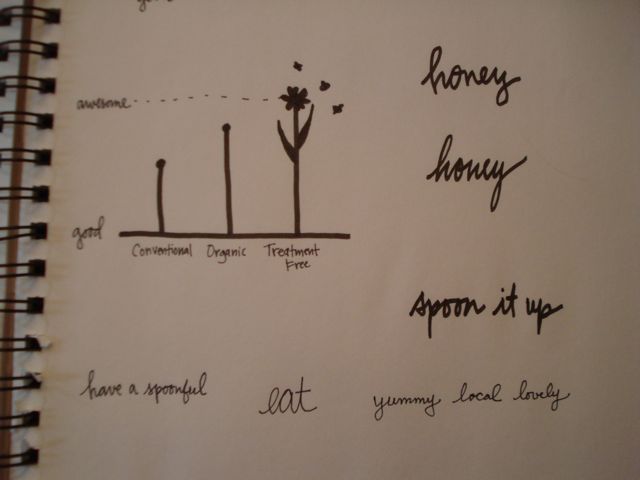 honey
awesome
honey
good
Conventional Organic Treatment Free
spoon it up
have a spoonful eat yummy local lovely